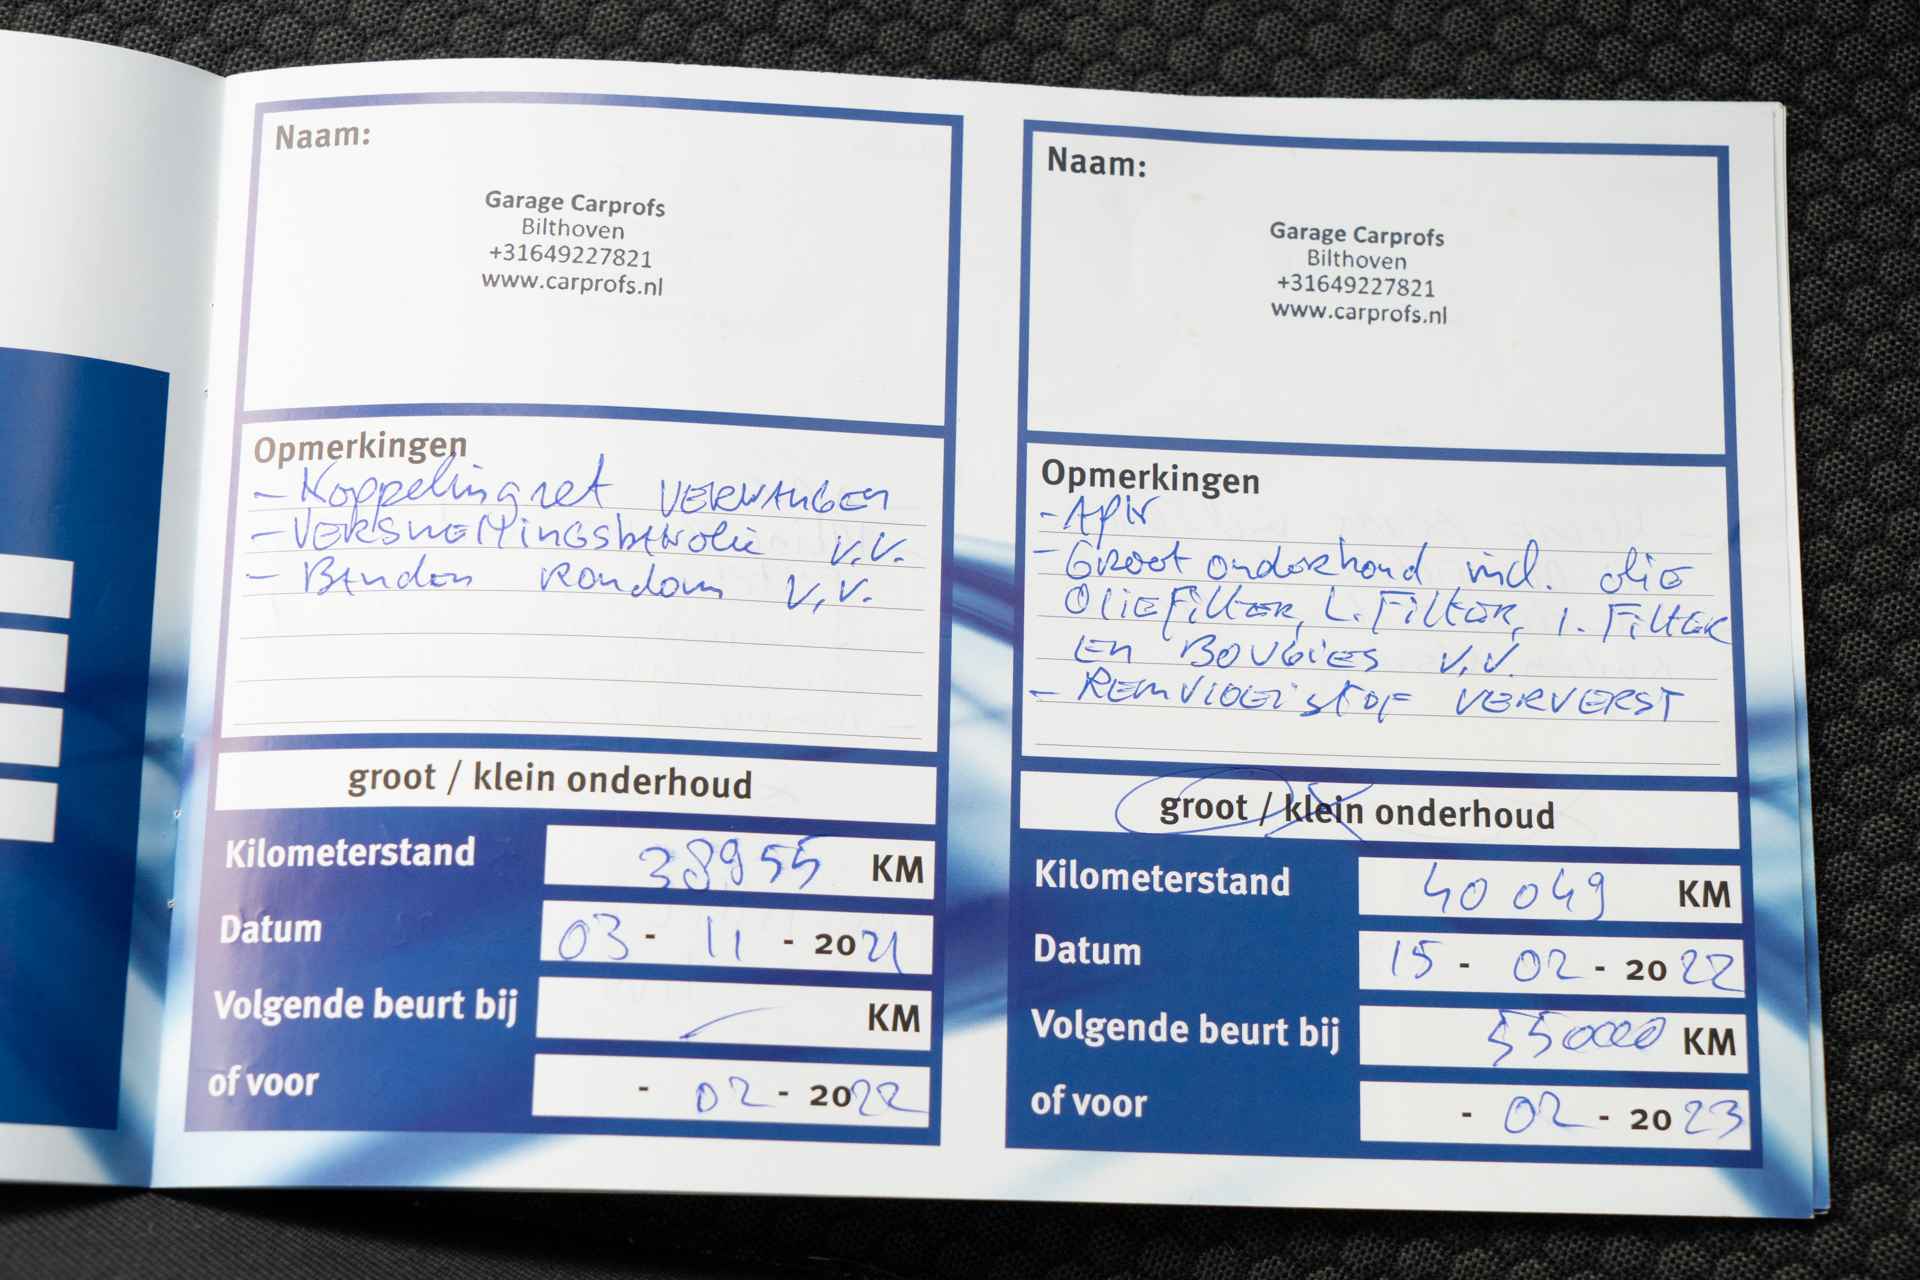 Naam:
Garage Carprofs
Bilthoven
+31649227821
www.carprofs.nl
Opmerkingen
- Koppelingset VERVANGEN
- VERSNELLINGSBAKOLIE V.V.
- Banden Rondom V.V.
groot / klein onderhoud
Kilometerstand 38955 KM
Datum 03 - 11 - 2021
Volgende beurt bij KM
of voor - 02 - 2022
Naam:
Garage Carprofs
Bilthoven
+31649227821
www.carprofs.nl
Opmerkingen
- APK
- Groot onderhoud incl. olie
OLIEFILTER, L. FILTER, I. FILTER
EN BOUGIES V.V.
- REMVLOEISTOF VERVERST
groot / klein onderhoud
Kilometerstand 40049 KM
Datum 15 - 02 - 2022
Volgende beurt bij 55000 KM
of voor - 02 - 2023